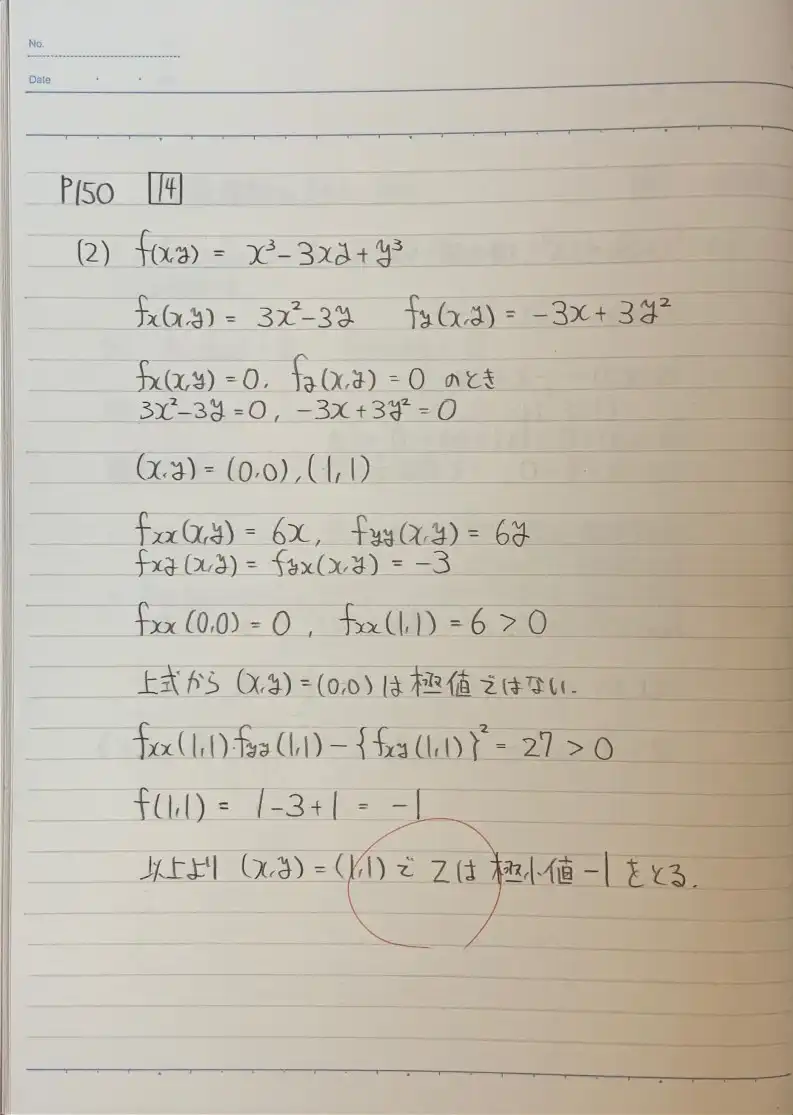 No.
Date
P150 14
(2) f(x,y) = x³-3xy+y³
fx(x,y) = 3x²-3y fy(x,y) = -3x+3y²
fx(x,y)=0, fy(x,y)=0 のとき
3x²-3y=0, -3x+3y²=0
(x,y)=(0,0),(1,1)
fxx(x,y) = 6x, fyy(x,y) = 6y
fxy(x,y) = fyx(x,y) = -3
fxx(0,0) = 0, fxx(1,1) = 6 > 0
上式から (x,y)=(0,0)は極値ではない.
fxx(1,1)·fyy(1,1)-{fxy(1,1)}² = 27 > 0
f(1,1) = 1-3+1 = -1
以上より (x,y)=(1,1)で zは極小値 -1 をとる.